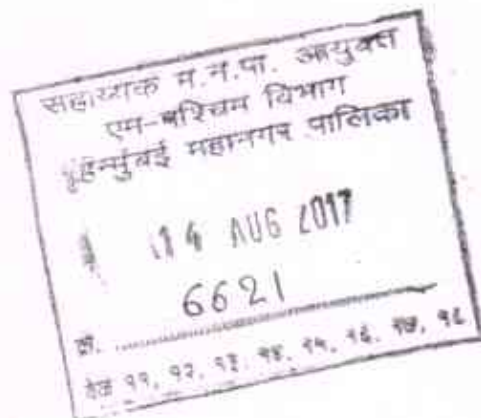 सहाय्यक म.न.पा. आयुक्त
एम-पश्चिम विभाग
बृहन्मुंबई महानगर पालिका
14 AUG 2017
6621
क्र. ........................
वेळ ११, १२, १३, १४, १५, १६, १७, १८